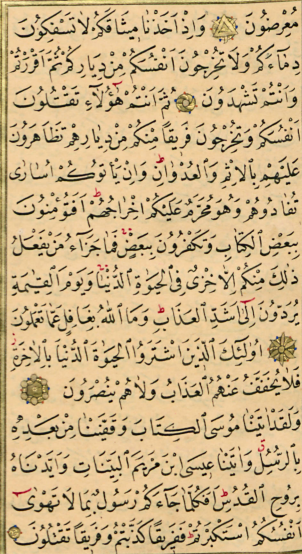 مُعْرِضُونَ وَإِذْ أَخَذْنَا مِيثَاقَكُمْ لَا تَسْفِكُونَ
دِمَاءَكُمْ وَلَا تُخْرِجُونَ أَنْفُسَكُمْ مِنْ دِيَارِكُمْ ثُمَّ أَقْرَرْتُمْ
وَأَنْتُمْ تَشْهَدُونَ ثُمَّ أَنْتُمْ هَؤُلَاءِ تَقْتُلُونَ
أَنْفُسَكُمْ وَتُخْرِجُونَ فَرِيقًا مِنْكُمْ مِنْ دِيَارِهِمْ تَظَاهَرُونَ
عَلَيْهِمْ بِالْإِثْمِ وَالْعُدْوَانِ وَإِنْ يَأْتُوكُمْ أُسَارَى
تُفَادُوهُمْ وَهُوَ مُحَرَّمٌ عَلَيْكُمْ إِخْرَاجُهُمْ أَفَتُؤْمِنُونَ
بِبَعْضِ الْكِتَابِ وَتَكْفُرُونَ بِبَعْضٍ فَمَا جَزَاءُ مَنْ يَفْعَلُ
ذَلِكَ مِنْكُمْ إِلَّا خِزْيٌ فِي الْحَيَوةِ الدُّنْيَا وَيَوْمَ الْقِيَمَةِ
يُرَدُّونَ إِلَى أَشَدِّ الْعَذَابِ وَمَا اللَّهُ بِغَافِلٍ عَمَّا تَعْمَلُونَ
أُولَئِكَ الَّذِينَ اشْتَرَوُا الْحَيَوةَ الدُّنْيَا بِالْآخِرَةِ
فَلَا يُخَفَّفُ عَنْهُمُ الْعَذَابُ وَلَا هُمْ يُنْصَرُونَ
وَلَقَدْ آتَيْنَا مُوسَى الْكِتَابَ وَقَفَّيْنَا مِنْ بَعْدِهِ
بِالرُّسُلِ وَآتَيْنَا عِيسَى ابْنَ مَرْيَمَ الْبَيِّنَاتِ وَأَيَّدْنَاهُ
بِرُوحِ الْقُدُسِ أَفَكُلَّمَا جَاءَكُمْ رَسُولٌ بِمَا لَا تَهْوَى
أَنْفُسُكُمُ اسْتَكْبَرْتُمْ فَفَرِيقًا كَذَّبْتُمْ وَفَرِيقًا تَقْتُلُونَ